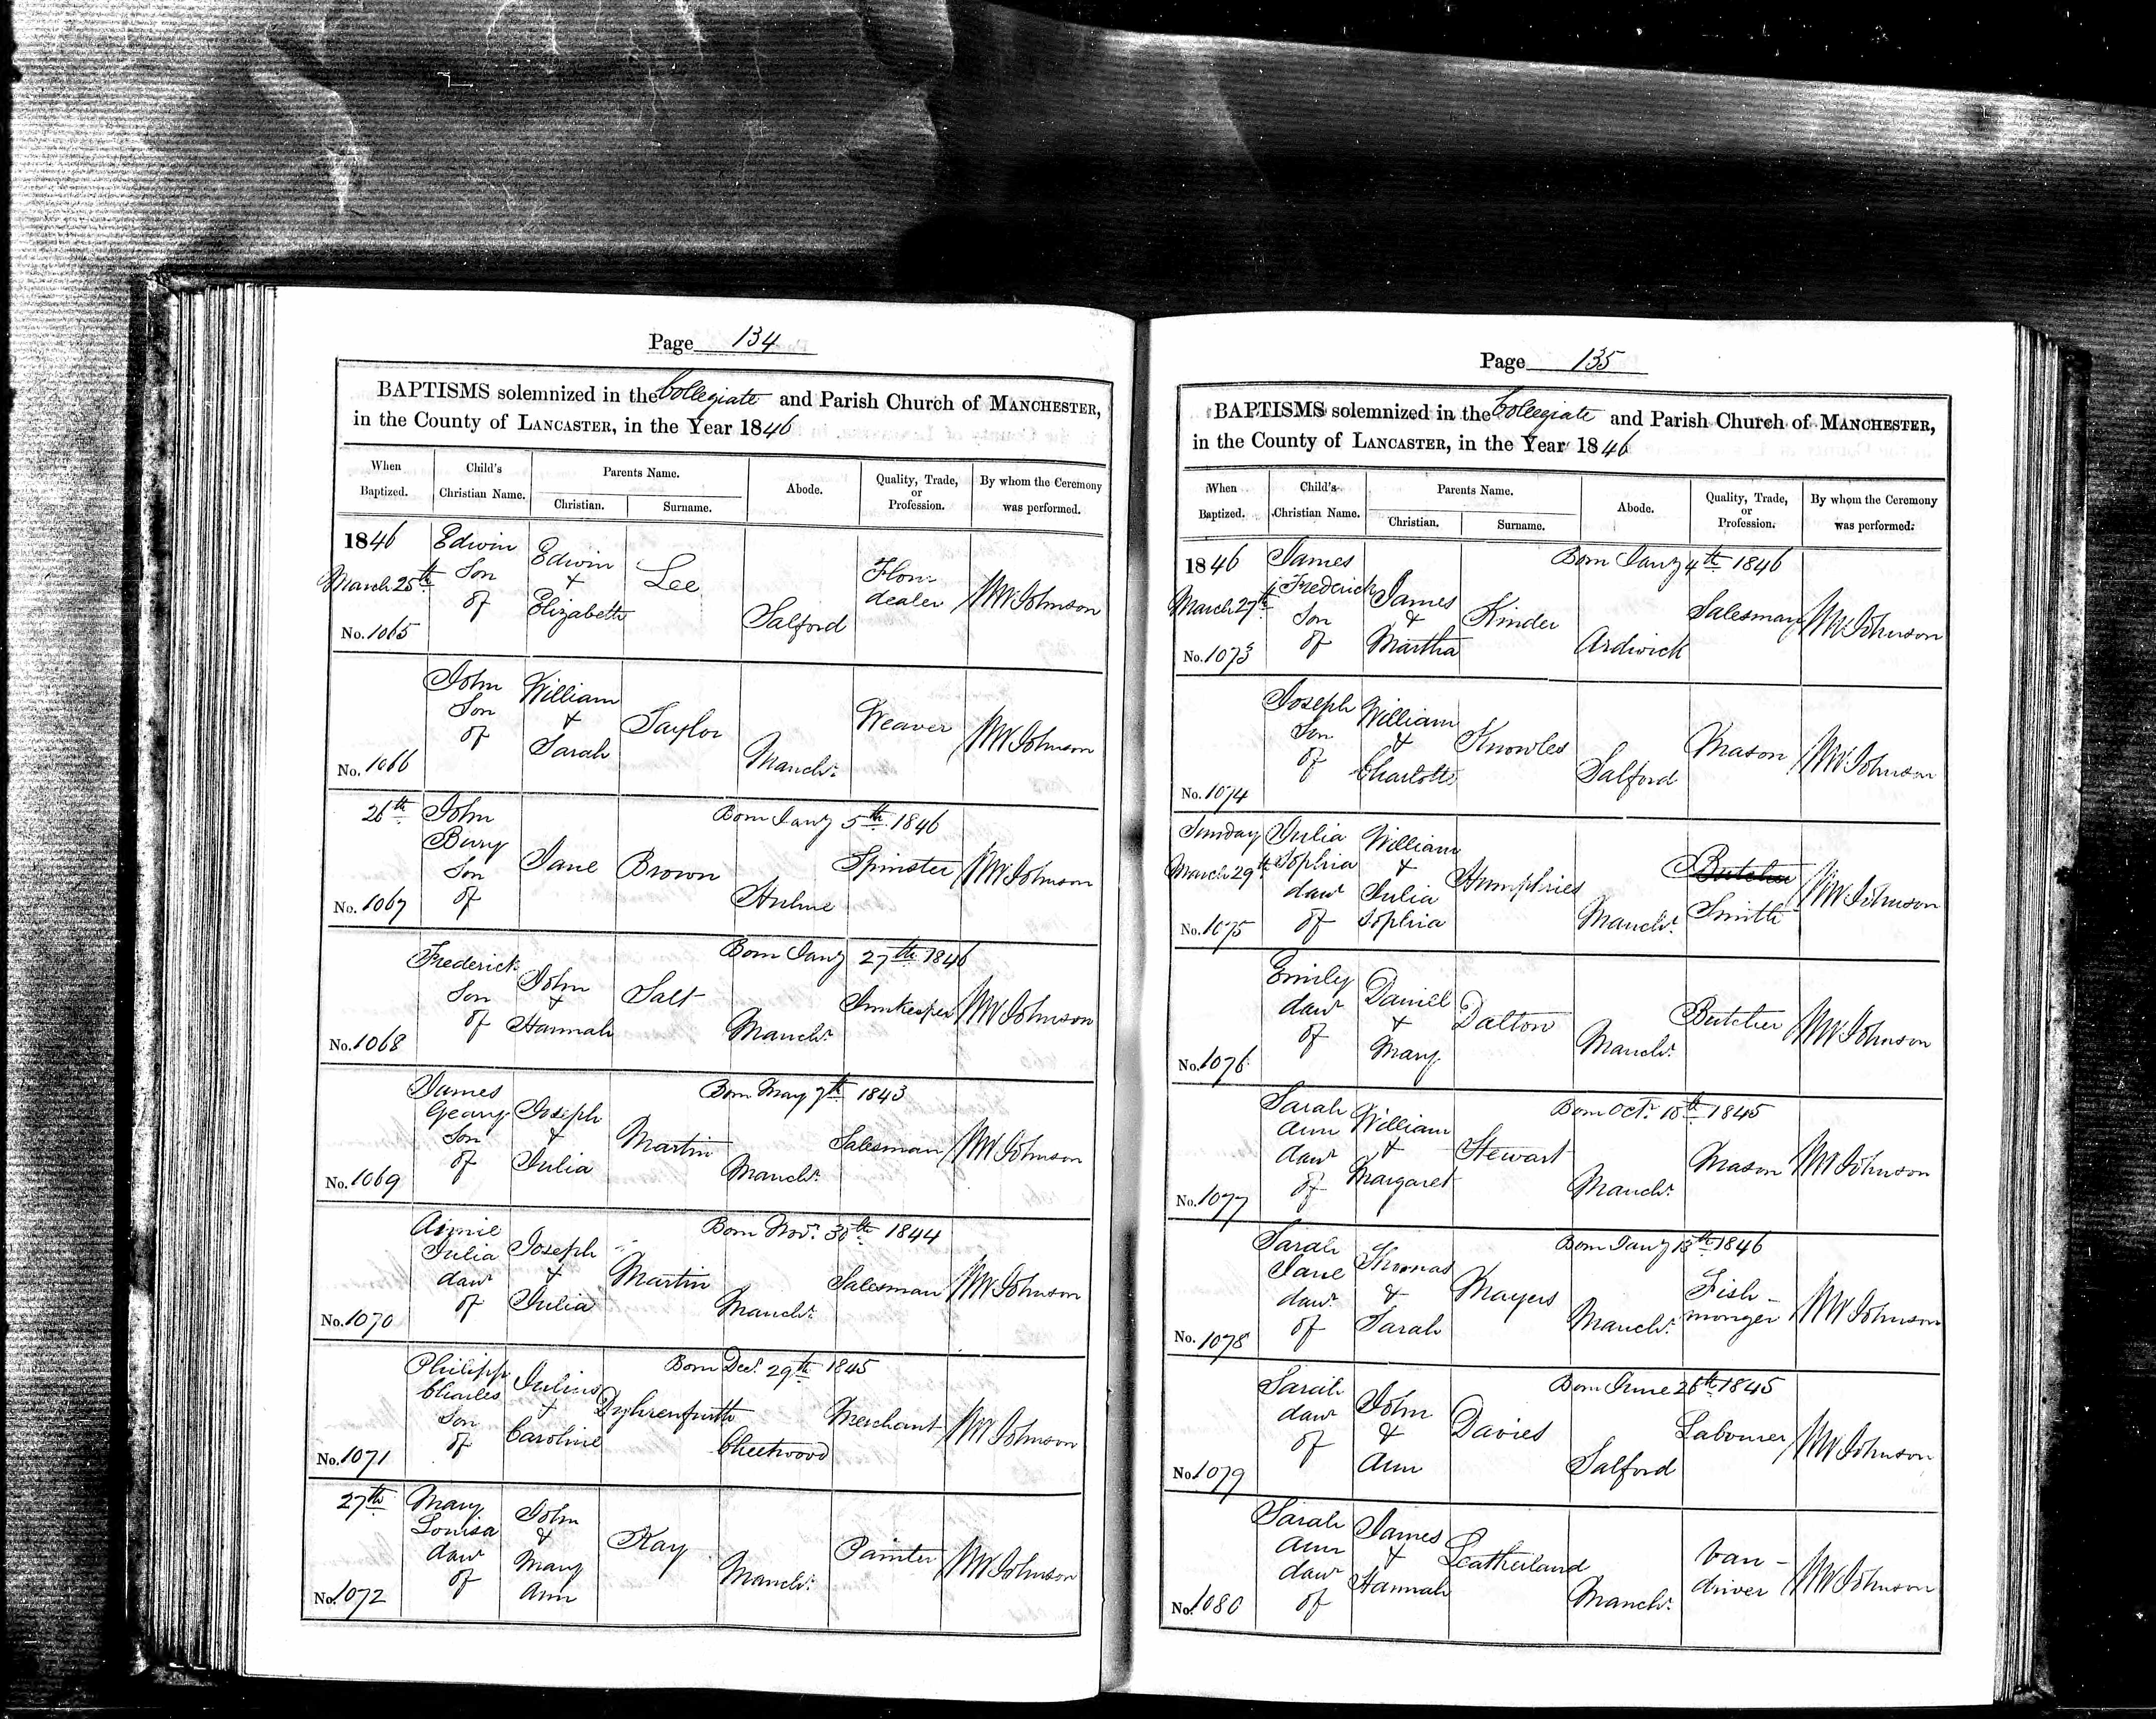 Page 134
BAPTISMS solemnized in the Collegiate and Parish Church of MANCHESTER,
in the County of LANCASTER, in the Year 1846
When Baptized. Child's Christian Name. Parents Name. Christian. Surname. Abode. Quality, Trade, or Profession. By whom the Ceremony was performed.
1846 March 25th No. 1065 Edwin Son of Edwin & Elizabeth Lee Salford Flour dealer WW Johnson
No. 1066 John Son of William & Sarah Taylor Manchr. Weaver WW Johnson
26th No. 1067 John Bury Son of Jane Brown Born Jany 5th 1846 Hulme Spinster WW Johnson
No. 1068 Frederick Son of John & Hannah Salt Born Jany 27th 1846 Manchr. Innkeeper WW Johnson
No. 1069 James Geary Son of Joseph & Julia Martin Born May 7th 1843 Manchr. Salesman WW Johnson
No. 1070 Julia daur of Joseph & Julia Martin Born Novr. 30th 1844 Manchr. Salesman WW Johnson
No. 1071 Philipp Charles Son of Julius & Caroline Dyhrenfurth Born Decr. 29th 1845 Cheetwood Merchant WW Johnson
27th No. 1072 Mary Louisa daur of John & Mary Ann Kay Manchr. Painter WW Johnson
Page 135
BAPTISMS solemnized in the Collegiate and Parish Church of MANCHESTER,
in the County of LANCASTER, in the Year 1846
When Baptized. Child's Christian Name. Parents Name. Christian. Surname. Abode. Quality, Trade, or Profession. By whom the Ceremony was performed.
1846 March 27th No. 1073 James Frederick Son of James & Martha Kinder Born Jany 4th 1846 Ardwick Salesman WW Johnson
No. 1074 Joseph Son of William & Charlotte Knowles Salford Mason WW Johnson
Sunday March 29th No. 1075 Julia Sophia daur of William & Julia Sophia Humphries Manchr. Butcher Smith WW Johnson
No. 1076 Emily daur of Daniel & Mary Dalton Manchr. Butcher WW Johnson
No. 1077 Sarah Ann daur of William & Margaret Stewart Born Octr. 18th 1845 Manchr. Mason WW Johnson
No. 1078 Sarah Jane daur. of Thomas & Sarah Mayers Born Jany 13th 1846 Manchr. Fish-monger WW Johnson
No. 1079 Sarah daur of John & Ann Davies Born June 26th 1845 Salford Labourer WW Johnson
No. 1080 Sarah Ann daur of James & Hannah Leatherland Manchr. Van-driver WW Johnson